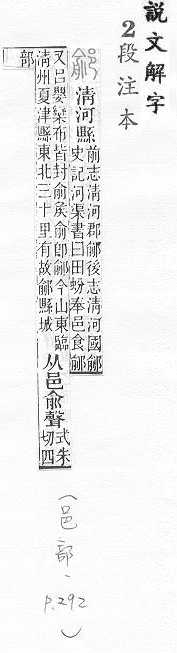 説文解字
2段注本
鄃 清河縣
前志清河郡鄃後志清河國鄃
史記河渠書曰田蚡奉邑食鄃
又呂嬰欒布皆封俞矦俞卽鄃今山東臨
清州夏津縣東北三十里有故鄃縣城
从邑俞聲
式朱
切四
部
（邑部、p.292）